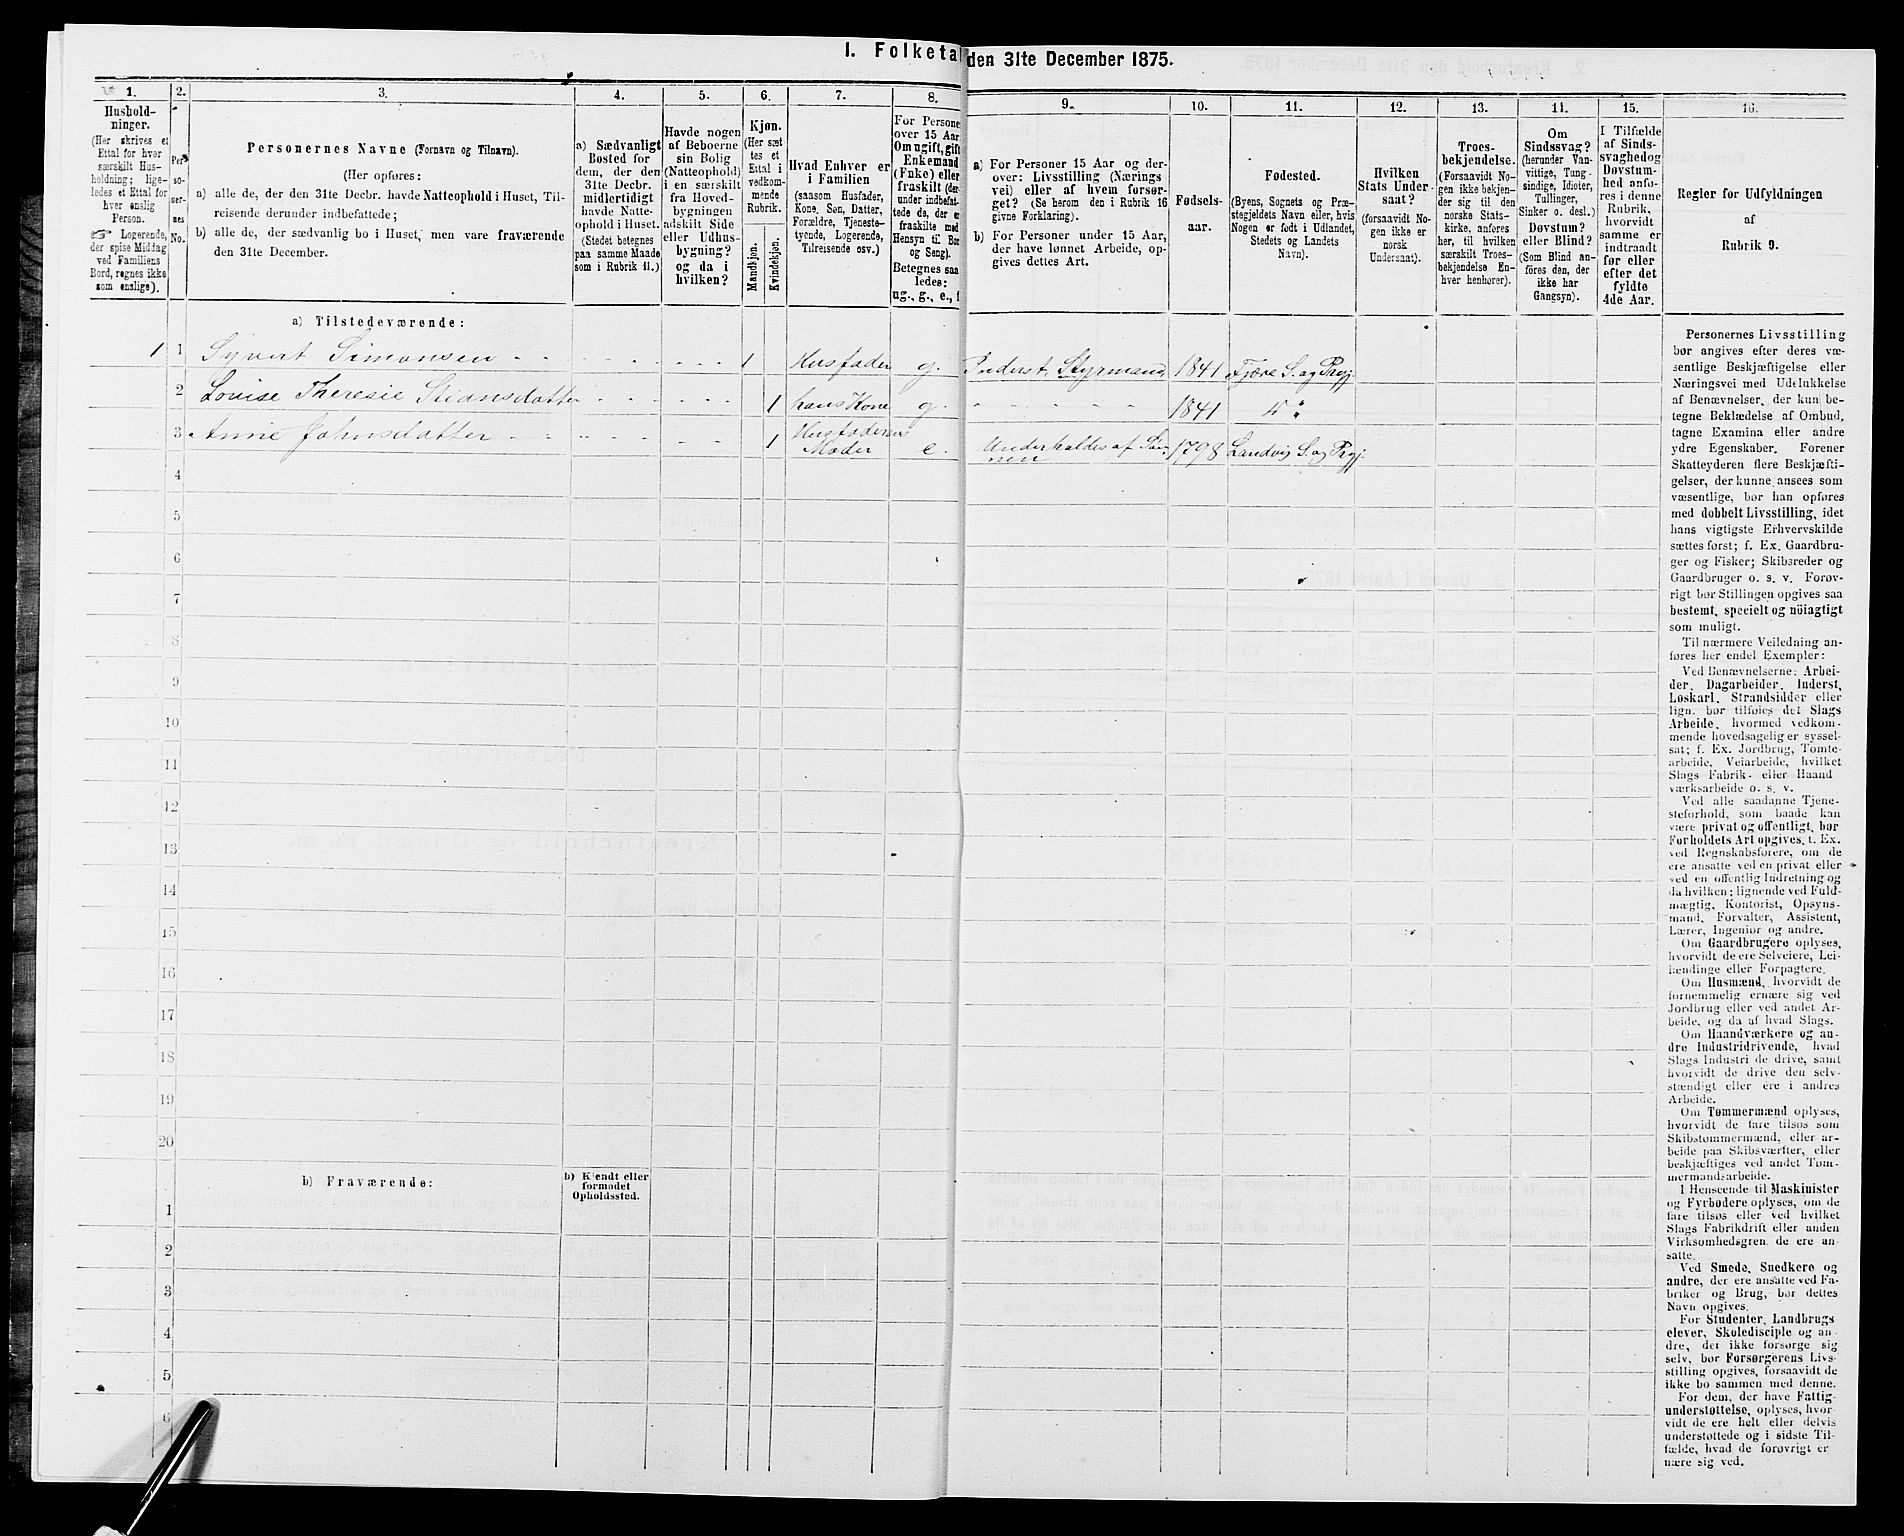 I. Folketal den 31te December 1875.
1. 2. 3. 4. 5. 6. 7. 8. 9. 10. 11. 12. 13. 14. 15. 16.
Hushold-
ninger.
(Her skrives et
Ettal for hver
særskilt Hus-
holdning; lige-
ledes et Ettal for
hver enslig
Person.
☞ Logerende,
der spise Middag
ved Familiens
Bord, regnes ikke
som enslige).
Per-
so-
ner-
nes
No.
Personernes Navne (Fornavn og Tilnavn).
(Her opføres:
a) alle de, der den 31te Decbr. havde Natteophold i Huset, Til-
reisende derunder indbefattede;
b) alle de, der sædvanlig bo i Huset, men vare fraværende
den 31te December.
a) Sædvanligt
Bosted for
dem, der den
31te Decbr.
midlertidigt
havde Natte-
ophold i Huset.
(Stedet betegnes
paa samme Maade
som i Rubrik 11.)
Havde nogen
af Beboerne
sin Bolig
(Natteophold)
i en særskilt
fra Hoved-
bygningen
adskilt Side
eller Udhus-
bygning?
og da i
hvilken?
Kjøn.
(Her sæt-
tes et
Ettal i
vedkom-
mende
Rubrik.
Mandkjøn.
Kvindekjøn.
Hvad Enhver er
i Familien
(saasom Husfader,
Kone, Søn, Datter,
Forældre, Tjeneste-
tyende, Logerende,
Tilreisende osv.)
For Personer
over 15 Aar
Om ugift, gift
Enkemand
(Enke) eller
fraskilt (der-
under indbefat-
tede de, der er
fraskilte med
Hensyn til Bor
og Seng).
Betegnes saa
ledes:
ug., g., e., f
a) For Personer 15 Aar og der-
over: Livsstilling (Nærings
vei) eller af hvem forsør-
get? (Se herom den i Rubrik 16
givne Forklaring).
b) For Personer under 15 Aar,
der have lønnet Arbeide, op-
gives dettes Art.
Fødsels-
aar.
Fødested.
(Byens, Sognets og Præ-
stegjeldets Navn eller, hvis
Nogen er født i Udlandet,
Stedets og Landets
Navn).
Hvilken
Stats Under-
saat?
(forsaavidt No-
gen ikke er
norsk
Undersaat).
Troes-
bekjendelse.
(Forsaavidt No-
gen ikke bekjen-
der sig til den
norske Stats-
kirke, anføres
her, til hvilken
særskilt Troes-
bekjendelse En-
hver henhører).
Om
Sindssvag?
(herunder Van-
vittige, Tung-
sindige, Idioter,
Tullinger,
Sinker o. desl.)
Døvstum?
eller Blind?
(Som Blind an-
føres den, der
ikke har
Gangsyn).
I Tilfælde
af Sinds-
svaghedog
Døvstum-
hed anfø-
res i denne
Rubrik,
hvorvidt
samme er
indtraadt
før eller
efter det
fyldte
4de Aar.
Regler for Udfyldningen
af
Rubrik 9.
a) Tilstedeværende:
1 1 Syvert Simonsen 1 Husfader g. Inderst, Styrmand 1841 Fjære S. og Prgj.
2 Louise Theresie Stiansdatter 1 hans Kone g. 1841 "
3 Anne Johnsdatter 1 Husfaderens Moder e. Underholdes af Sønnen 1798 Landvig S. og Prgj.
4
5
6
7
8
9
10
11
12
13
14
15
16
17
18
19
20
b) Fraværende:
b) Kjendt eller
formodet
Opholdssted.
1
2
3
4
5
6
Personernes Livsstilling
bør angives efter deres væ-
sentlige Beskjæftigelse eller
Næringsvei med Udelukkelse
af Benævnelser, der kun be-
tegne Beklædelse af Ombud,
tagne Examina eller andre
ydre Egenskaber. Forener
Skatteyderen flere Beskjæfti-
gelser, der kunne ansees som
væsentlige, bør han opføres
med dobbelt Livsstilling, idet
hans vigtigste Erhvervskilde
sættes først; f. Ex. Gaardbru-
ger og Fisker; Skibsreder og
Gaardbruger o. s. v. Forøv-
rigt bør Stillingen opgives saa
bestemt, specielt og nöiagtigt
som muligt.
Til nærmere Veiledning an-
føres her endel Exempler:
Ved Benævnelserne: Arbei-
der, Dagarbeider, Inderst,
Løskarl, Strandsidder eller
lign. bør tilføies det Slags
Arbeide, hvormed vedkom-
mende hovedsagelig er syssel-
sat; f. Ex. Jordbrug, Tomte-
arbeide, Veiarbeide, hvilket
Slags Fabrik- eller Haand
værksarbeide o. s. v.
Ved alle saadanne Tjene-
steforhold, som baade kan
være privat og offentligt, bør
Forholdets Art opgives, t. Ex.
ved Regnskabsførere, om de
ere ansatte ved en privat eller
ved en offentlig Indretning og
da hvilken; lignende ved Fuld-
mægtig, Kontorist, Opsyns-
mand, Forvalter, Assistent,
Lærer, Ingeniør og andre.
Om Gaardbrugere oplyses,
hvorvidt de ere Selveiere, Lei-
lændinge eller Forpagtere.
Om Husmænd, hvorvidt de
fornemmelig ernære sig ved
Jordbrug eller ved andet Ar-
beide, og da af hvad Slags.
Om Haandværkere og an-
dre Industridrivende, hvad
Slags Industri de drive, samt
hvorvidt de drive den selv-
stændigt eller ere i andres
Arbeide.
Om Tømmermænd oplyses,
hvorvidt de fare tilsøs som
Skibstømmermænd, eller ar-
beide paa Skibsværfter, eller
beskjæftiges ved andet Tøm-
mermandsarbeide.
I Henseende til Maskinister
og Fyrbødere oplyses, om de
fare tilsøs eller ved hvilket
Slags Fabrikdrift eller anden
Virksomhedsgren de ere an-
satte.
Ved Smede, Snedkere og
andre, der ere ansatte ved Fa-
briker og Brug, bør dettes
Navn opgives.
For Studenter, Landbrugs
elever, Skoledisciple og an-
dre, der ikke forsørge sig
selv, bør Forsørgerens Livs-
stilling opgives, forsaavidt de
ikke bo sammen med denne.
For dem, der have Fattig-
understøttelse, oplyses, hvor-
vidt de ere helt eller delvis
understøttede og i sidste Til-
fælde, hvad de forøvrigt er
nære sig ved.